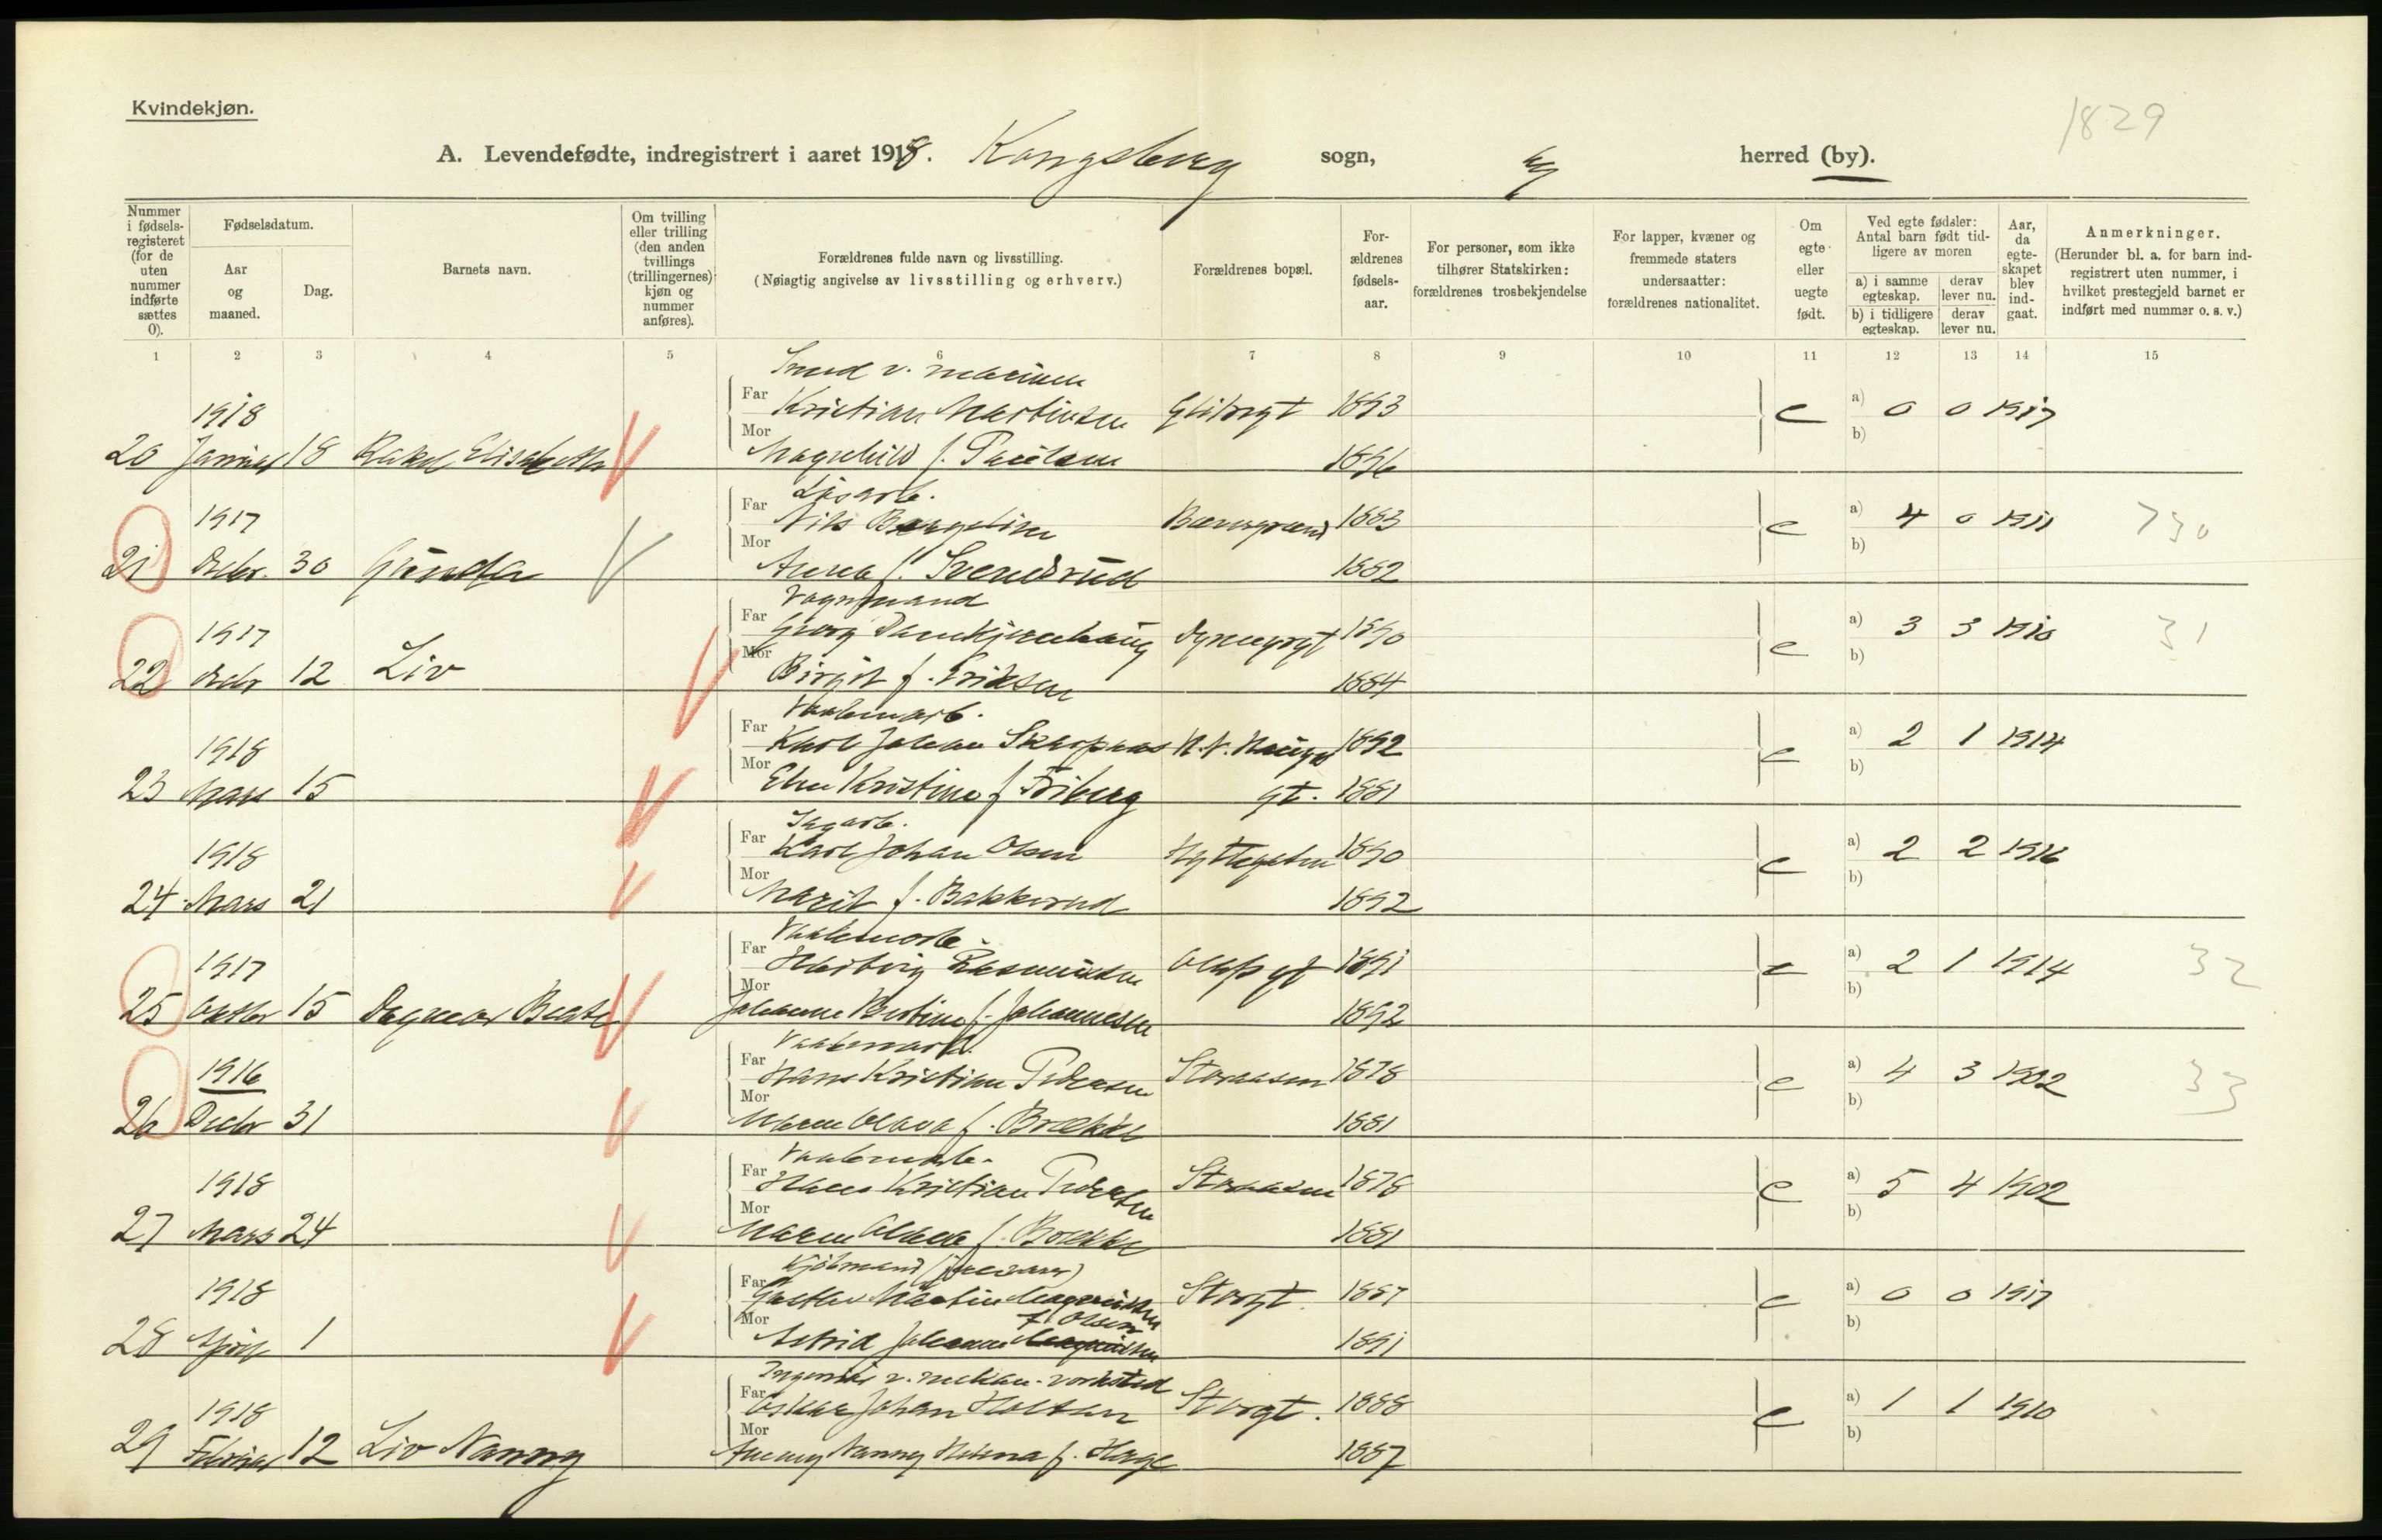 Kvindekjøn.
1829
A. Levendefødte, indregistrert i aaret 1918. Kongsberg sogn, by herred (by).
Nummer i fødsels-registeret (for de uten nummer indførte sættes 0).
Fødselsdatum.
Aar og maaned.
Dag.
Barnets navn.
Om tvilling eller trilling (den anden tvillings (trillingernes) kjøn og nummer anføres).
Forældrenes fulde navn og livsstilling.
(Nøiagtig angivelse av livsstilling og erhverv.)
Forældrenes bopæl.
For-ældrenes fødsels-aar.
For personer, som ikke tilhører Statskirken: forældrenes trosbekjendelse
For lapper, kvæner og fremmede staters undersaatter: forældrenes nationalitet.
Om egte eller uegte født.
Ved egte fødsler: Antal barn født tid-ligere av moren
a) i samme egteskap. derav lever nu.
b) i tidligere egteskap. derav lever nu.
Aar, da egte-skapet blev ind-gaat.
Anmerkninger.
(Herunder bl. a. for barn ind-registrert uten nummer, i hvilket prestegjeld barnet er indført med nummer o. s. v.)
1 2 3 4 5 6 7 8 9 10 11 12 13 14 15
Smed v. marinen
1918 Far Kristian Martinsen 1893 e a) 0 0 1917
20 Januar 18 Rakel Elisabeth Mor Magnhild f. Paulsen 1896 b)
Løsarb.
1917 Far Nils 1883 e a) 4 0 1911 730
21 Decbr. 30 Gunda Mor Anna f. Svendsrud 1882 b)
Vognmand
1917 Far Georg 1890 e a) 3 3 1910 31
22 Decbr 12 Liv Mor Birgit f. Eriksen 1884 b)
Vaabenarb.
1918 Far Karl Johan Skarpaas 1892 e a) 2 1 1914
23 Mars 15 Mor Kristine f. Friberg gt. 1881 b)
Sagarb.
1918 Far Karl Johan Olsen 1890 e a) 2 2 1916
24 Mars 21 Mor Marit f. Bakkerud 1892 b)
Vaabenarb.
1917 Far Rasmussen gt 1891 e a) 2 1 1914 32
25 Oktbr 15 Dagmar Beate Mor Johanne f. Johannessen 1892 b)
Vaabenarb.
1916 Far Hans Kristian Pedersen Storaasen 1878 e a) 4 3 1902 33
26 Decbr 31 Mor Maren Olava f. Brække 1881 b)
Vaabenarb.
1918 Far Hans Kristian Pedersen Storaasen 1878 e a) 5 4 1902
27 Mars 24 Mor Maren Olava f. Brække 1881 b)
Kjøbmand
1918 Far Martin Magnussen Storgt. 1887 e a) 0 0 1917
f. Olsen
28 April 1 Mor Astrid Johanne Magnussen 1891 b)
Ingeniør v. mekan. verksted
1918 Far Oskar Johan Holtan Storgt. 1888 e a) 1 1 1910
29 Februar 12 Liv Nanny Mor Nanny Helena f. 1887 b)